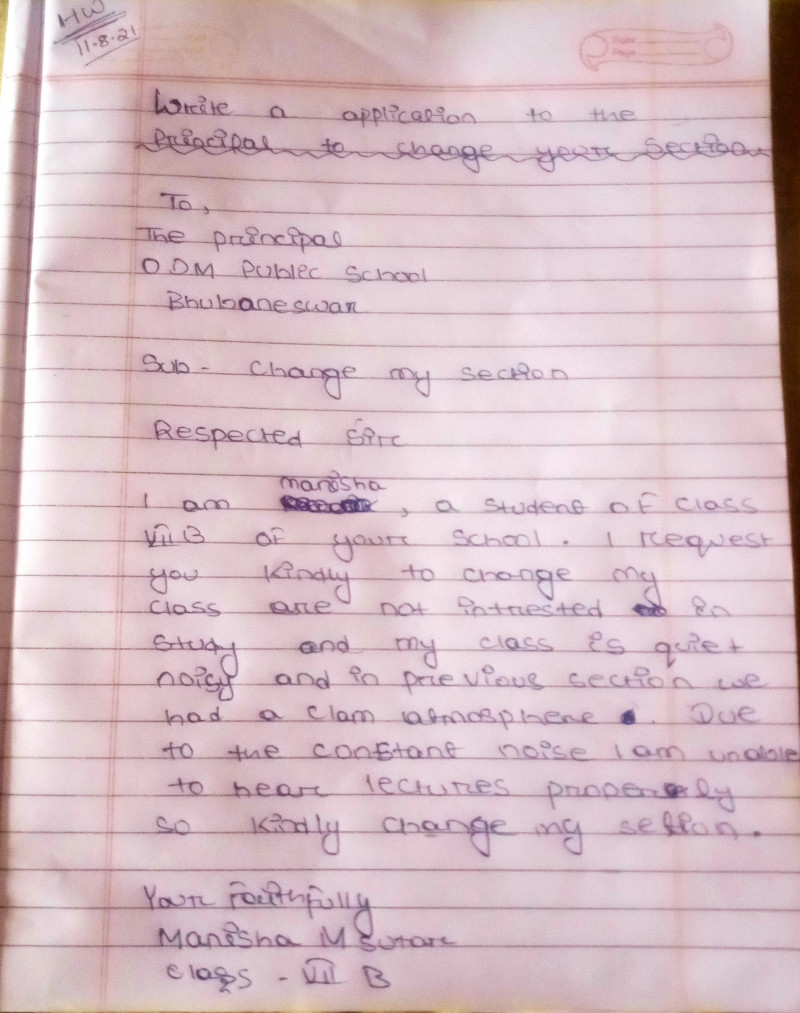 HW
11-8-21
Write a application to the
Principal to change your Section
To,
The principal
ODM Public School
Bhubaneswar
Sub- Change my section
Respected Sir
manisha
I am , a student of class
VII B of your School. I request
you kindly to change my
class are not intrested in
study and my class is quiet
noisy and in previous section we
had a clam atmosphere . Due
to the constant noise I am unable
to hear lectures properly
so kindly change my setion.
Your Faithfully
Manisha M Sutar
Class - VII B